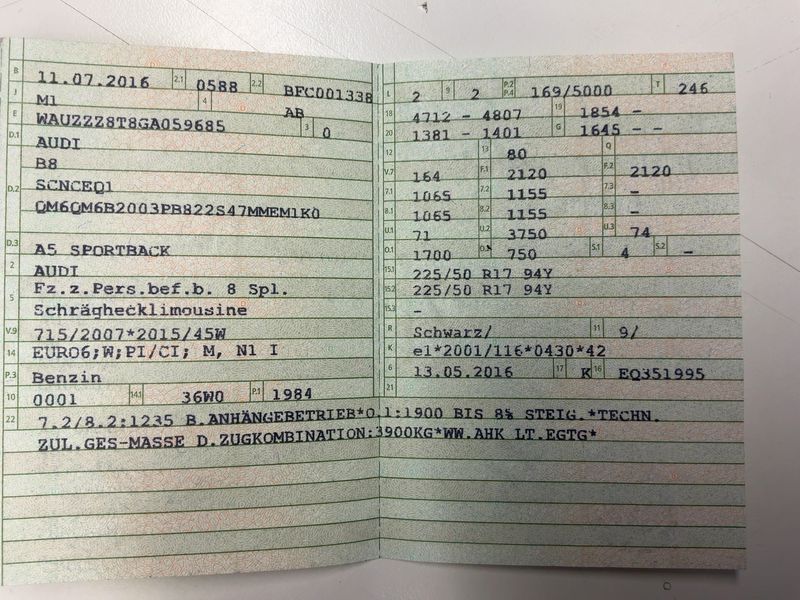 B 11.07.2016 2.1 0588 2.2 BFC001338
J M1 4 AB
E WAUZZZ8T8GA059685 3 0
D.1 AUDI
B8
D.2 SCNCEQ1
QM6QM6B2003PB822S47MMEM1K0
D.3 A5 SPORTBACK
2 AUDI
5 Fz.z.Pers.bef.b. 8 Spl.
Schräghecklimousine
V.9 715/2007*2015/45W
14 EURO6;W;PI/CI; M, N1 I
P.3 Benzin
10 0001 14.1 36W0 P.1 1984
L 2 9 2 P.2 P.4 169/5000 T 246
18 4712 - 4807 19 1854 -
20 1381 - 1401 G 1645 - -
12 13 80 Q
V.7 164 F.1 2120 F.2 2120
7.1 1065 7.2 1155 7.3 -
8.1 1065 8.2 1155 8.3 -
U.1 71 U.2 3750 U.3 74
O.1 1700 O.2 750 S.1 4 S.2 -
15.1 225/50 R17 94Y
15.2 225/50 R17 94Y
15.3 -
R Schwarz/ 11 9/
K e1*2001/116*0430*42
6 13.05.2016 17 K 16 EQ351995
21
22 7.2/8.2:1235 B.ANHÄNGEBETRIEB*O.1:1900 BIS 8% STEIG.*TECHN.
ZUL.GES-MASSE D.ZUGKOMBINATION:3900KG*WW.AHK LT.EGTG*